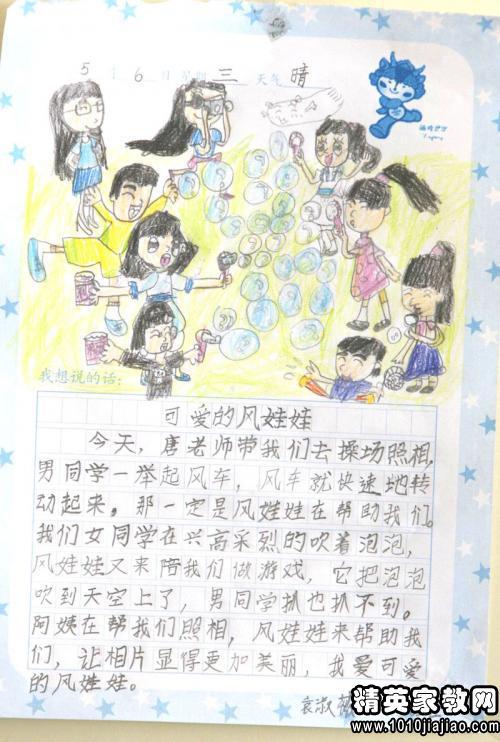 5 月 6 日 星期 三 天气 晴
我想说的话：
可爱的风娃娃
今天，唐老师带我们去操场照相，
男同学一举起风车，风车就快速地转
动起来。那一定是风娃娃在帮助我们。
我们女同学在兴高采烈的吹着泡泡，
风娃娃又来陪我们做游戏，它把泡泡
吹到天空上了，男同学扒也扒不到。
阿姨在帮我们照相，风娃娃来帮助我
们，让相片显得更加美丽，我爱可爱
的风娃娃。
袁淑
精英家教网
www.1010jiajiao.com